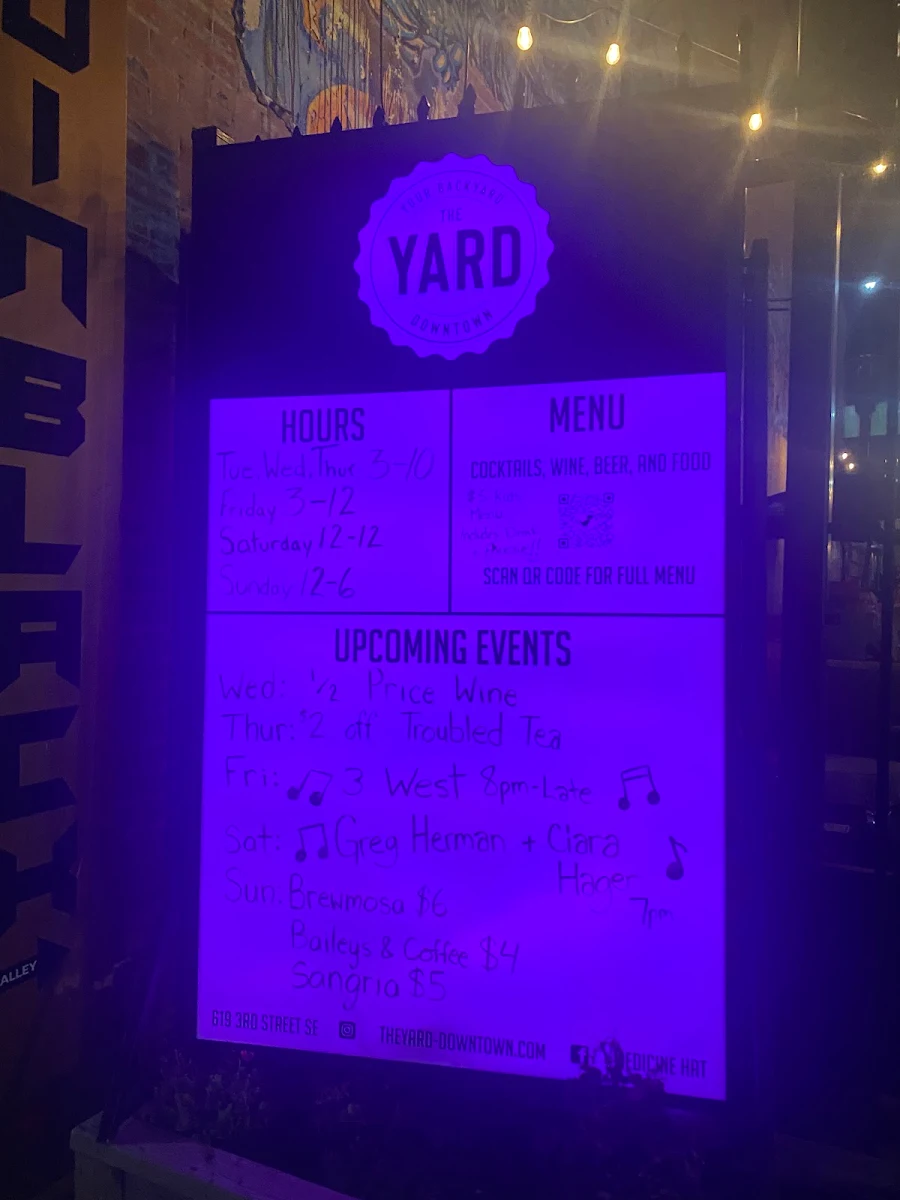 YOUR BACKYARD
THE
YARD
DOWNTOWN
HOURS
Tue. Wed. Thur 3-10
Friday 3-12
Saturday 12-12
Sunday 12-6
MENU
COCKTAILS, WINE, BEER, AND FOOD
Menu
SCAN QR CODE FOR FULL MENU
UPCOMING EVENTS
Wed: 1/2 Price Wine
Thur: $2 off Troubled Tea
Fri: 3 West 8pm-Late
Sat: Greg Herman + Ciara
Hager
7pm
Sun: Brewmosa $6
Baileys & Coffee $4
Sangria $5
619 3RD STREET SE
THEYARD-DOWNTOWN.COM
EDICINE HAT
ALLEY